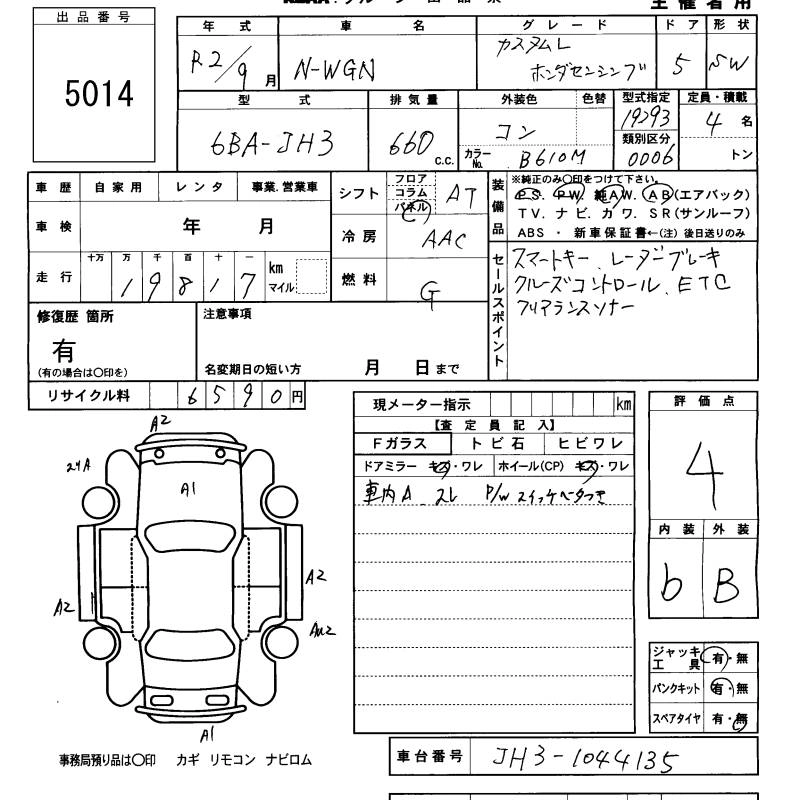 出品番号
5014
主催者用
年式 車名 グレード ドア 形状
R2/9月 N-WGN カスタムL ホンダセンシング 5 SW
型式 排気量 外装色 色替 型式指定 定員・積載
6BA-JH3 660 C.C. コン 19293 4名
類別区分
カラーNo. B610M 0006 トン
車歴 自家用 レンタ 事業.営業車
車検 年 月
十万 万 千 百 十 一
走行 1 9 8 1 7 km マイル
シフト フロア コラム パネル AT
冷房 AAC
燃料 G
装備品
※純正のみ〇印をつけて下さい。
PS. PW. 純AW. AB(エアバック)
TV. ナビ. カワ. SR(サンルーフ)
ABS ・ 新車保証書←(注) 後日送りのみ
セールスポイント
スマートキー、レーダーブレーキ
クルーズコントロール、ETC
クリアランスソナー
修復歴 箇所
有
(有の場合は〇印を)
注意事項
名変期日の短い方 月 日まで
リサイクル料 6 5 9 0 円
現メーター指示 km
【査定員記入】
Fガラス トビ石 ヒビワレ
ドアミラー キズ・ワレ ホイール(CP) キズ・ワレ
車内A
P/W
評価点
4
内装 外装
b B
A2
A1
A2
A2
A1
ジャッキ工具 有・無
パンクキット 有・無
スペアタイヤ 有・無
事務局預り品は〇印 カギ リモコン ナビロム
車台番号 JH3-1044135